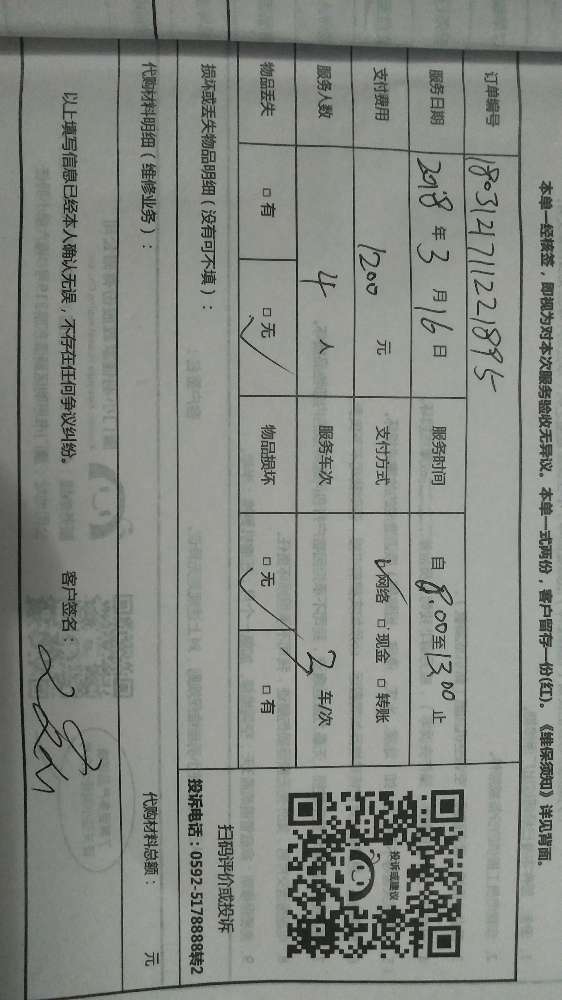 本单一经核签，即视为对本次服务验收无异议。本单一式两份，客户留存一份(红)。《维保须知》详见背面。
订单编号 1803121711221895
服务日期 2018 年 3 月 16 日 服务时间 自 8:00 至 13:00 止
支付费用 1200 元 支付方式 ☑网络 □现金 □转账
服务人数 4 人 服务车次 3 车/次
物品丢失 □有 □无 ✓ 物品损坏 □无 ✓ □有
投诉或建议
扫码评价或投诉
投诉电话：0592-5178888转2
损坏或丢失物品明细（没有可不填）：
代购材料明细（维修业务）： 代购材料总额： 元
以上填写信息已经本人确认无误，不存在任何争议纠纷。 客户签名：